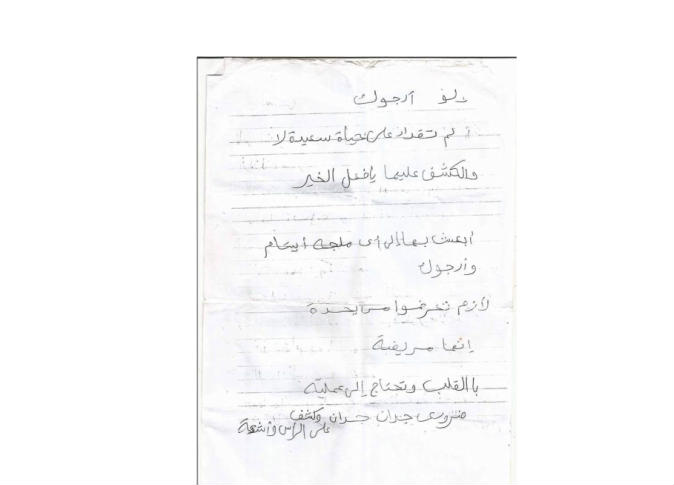 أرجوك
لم تقدار على حياة سعيدة لا
والكشف عليها يافعل الخير
أبعث بها إلى اى ملجه أيتام
وأرجوك
لأزم تعرضوا من يخدة
إنها مريضة
بالقلب وتحتاج إلى عملية
ضرورى جدان جدان وكشف
على الرأس وأشعة